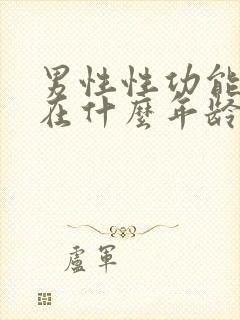 男性性功能
在什麼年齡
盧軍